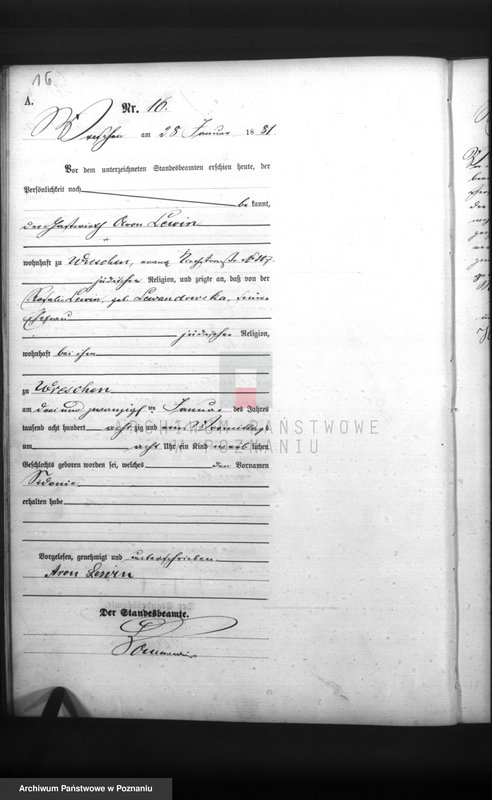 16
A.
Nr. 16.
Wreschen am 28 Januar 1881
Vor dem unterzeichneten Standesbeamten erschien heute, der
Persönlichkeit nach
be kannt,
der Gastwirth Aron Lewin
wohnhaft zu Wreschen,
jüdischer Religion, und zeigte an, daß von der
Rosalie Lewin, geb. Lewandowska, seiner
Ehefrau
jüdischer Religion,
wohnhaft bei ihm
zu Wreschen
am drei und zwanzigsten Januar des Jahres
tausend acht hundert acht zig und eins Vormittags
um acht Uhr ein Kind weib lichen
Geschlechts geboren worden sei, welches den Vornamen
Sidonie
erhalten habe
Vorgelesen, genehmigt und unterschrieben
Aron Lewin
Der Standesbeamte.
ARCHIWUM PAŃSTWOWE
W POZNANIU
Archiwum Państwowe w Poznaniu